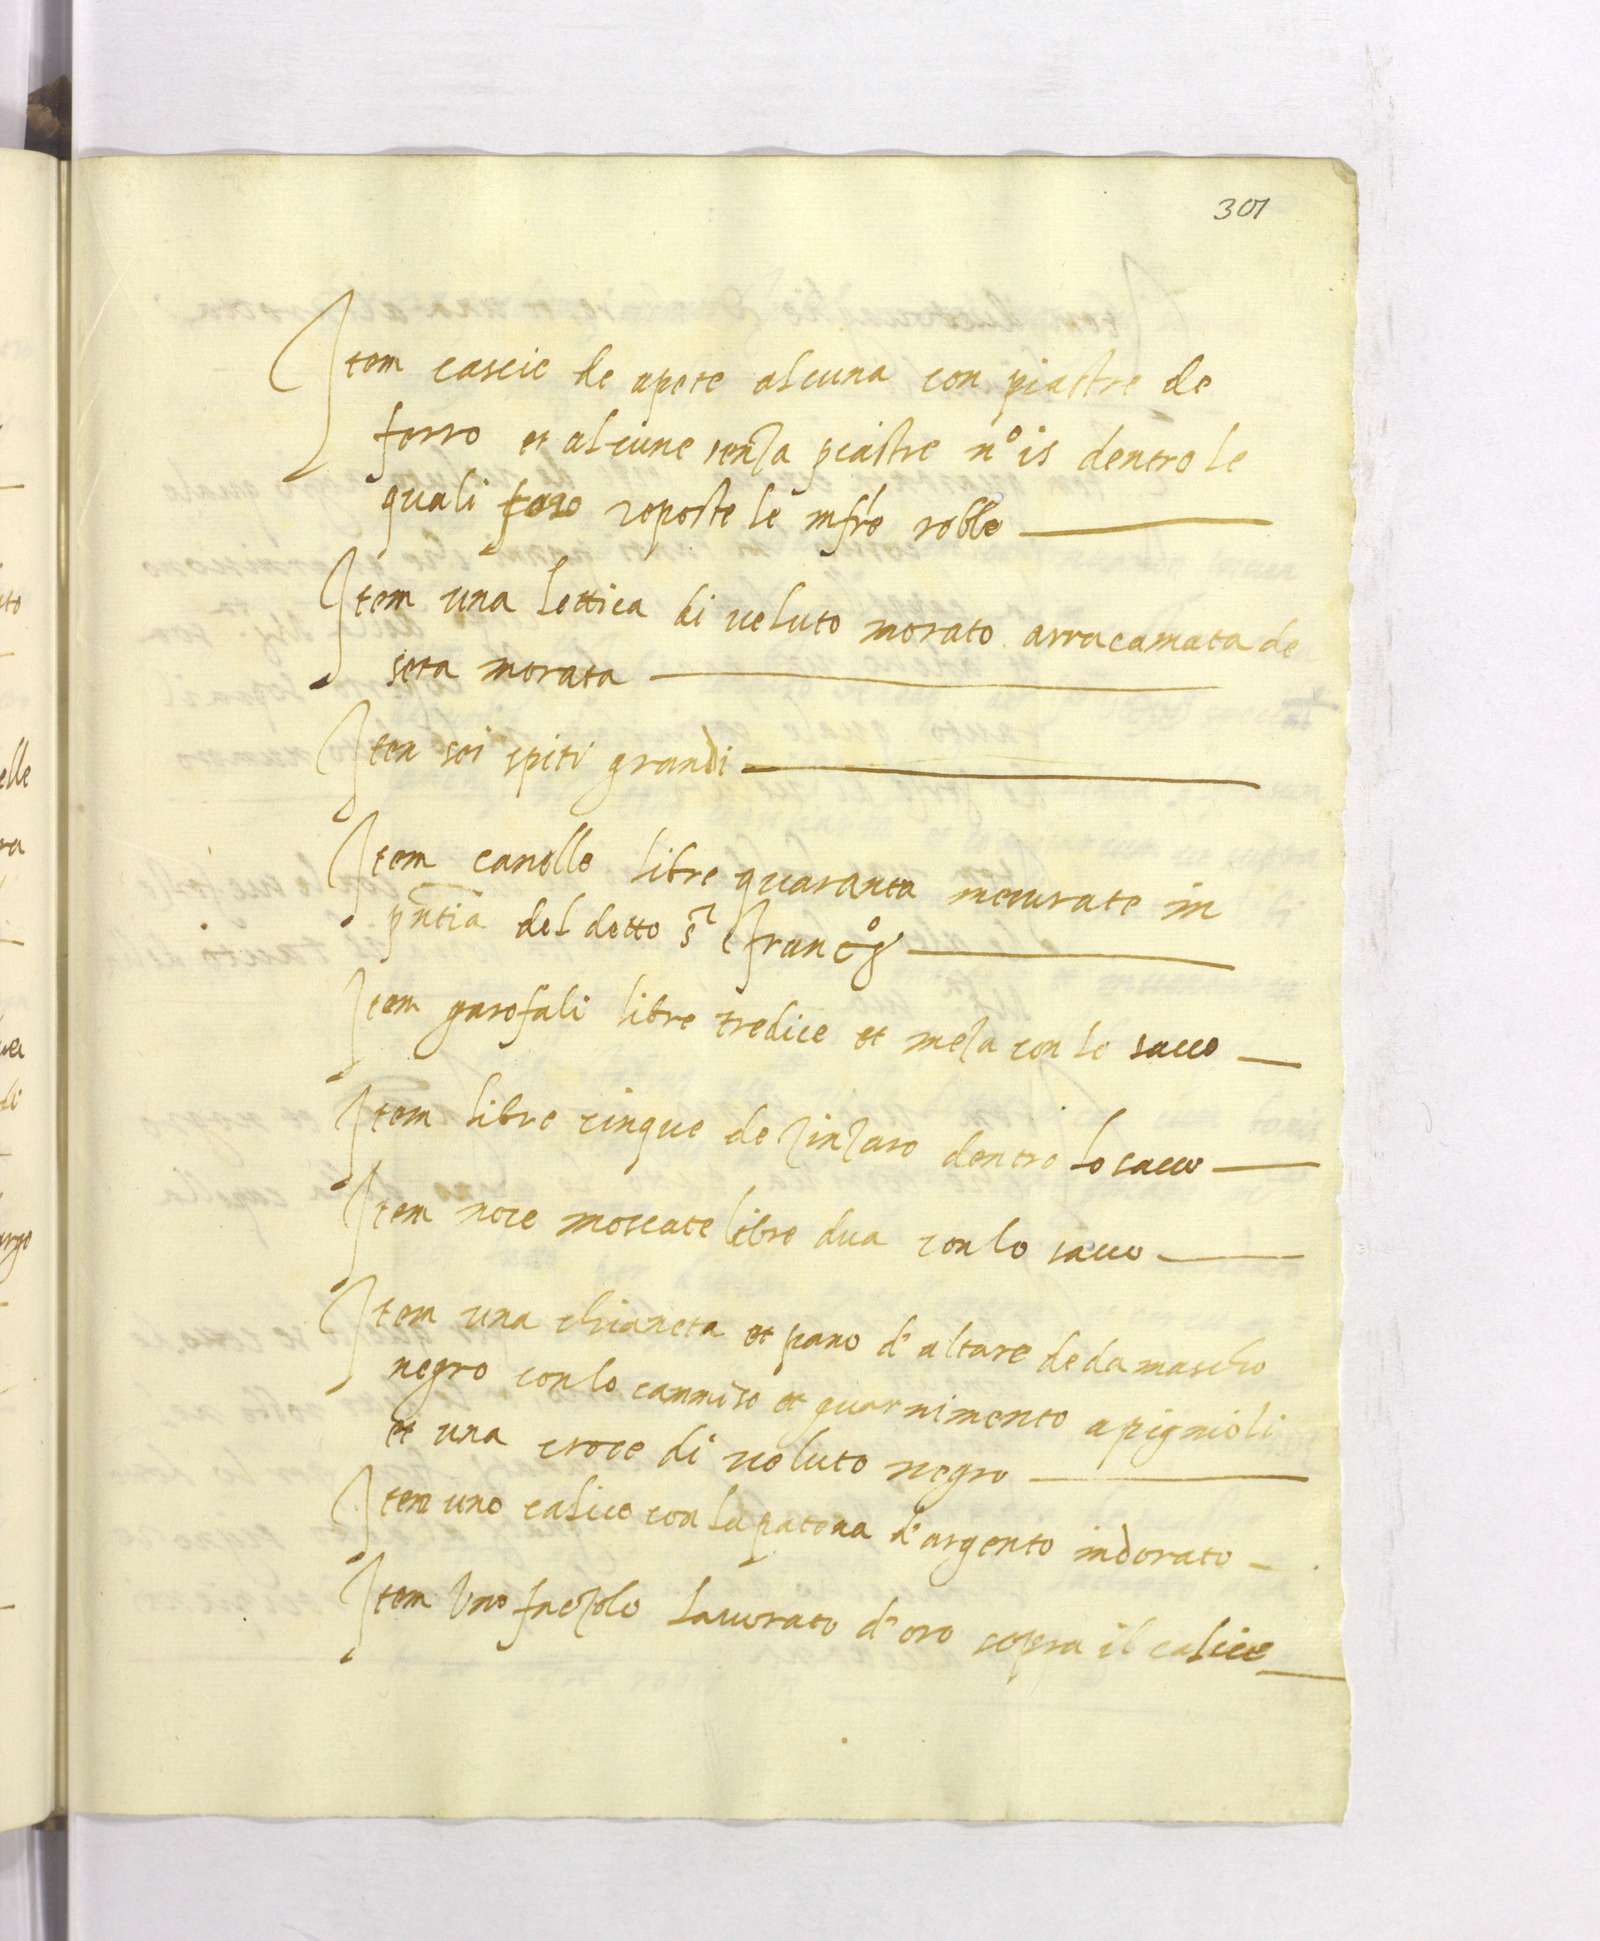 301
Item cascie de apete alcuna con piastre de
ferro et alcune senza piastre n° is dentro le
quali foro reposte le infre robbe
Item una lettica di veluto morato arracamata de
seta morata
Item sei spiti grandi
Item canelle libre quaranta mesurate in
pntia del detto sr Franco
Item garofali libre tredice et meza con lo sacco
Item libre cinque de zinzaro dentro lo sacco
Item noce moscate libre dua con lo sacco
Item una chianeta et pano d'altare de damascho
negro con lo cammiso et guarnimento a pignioli
et una croce di veluto negro
Item uno calice con la patena d'argento indorato
Item uno faczolo lavorato d'oro sopra il calice